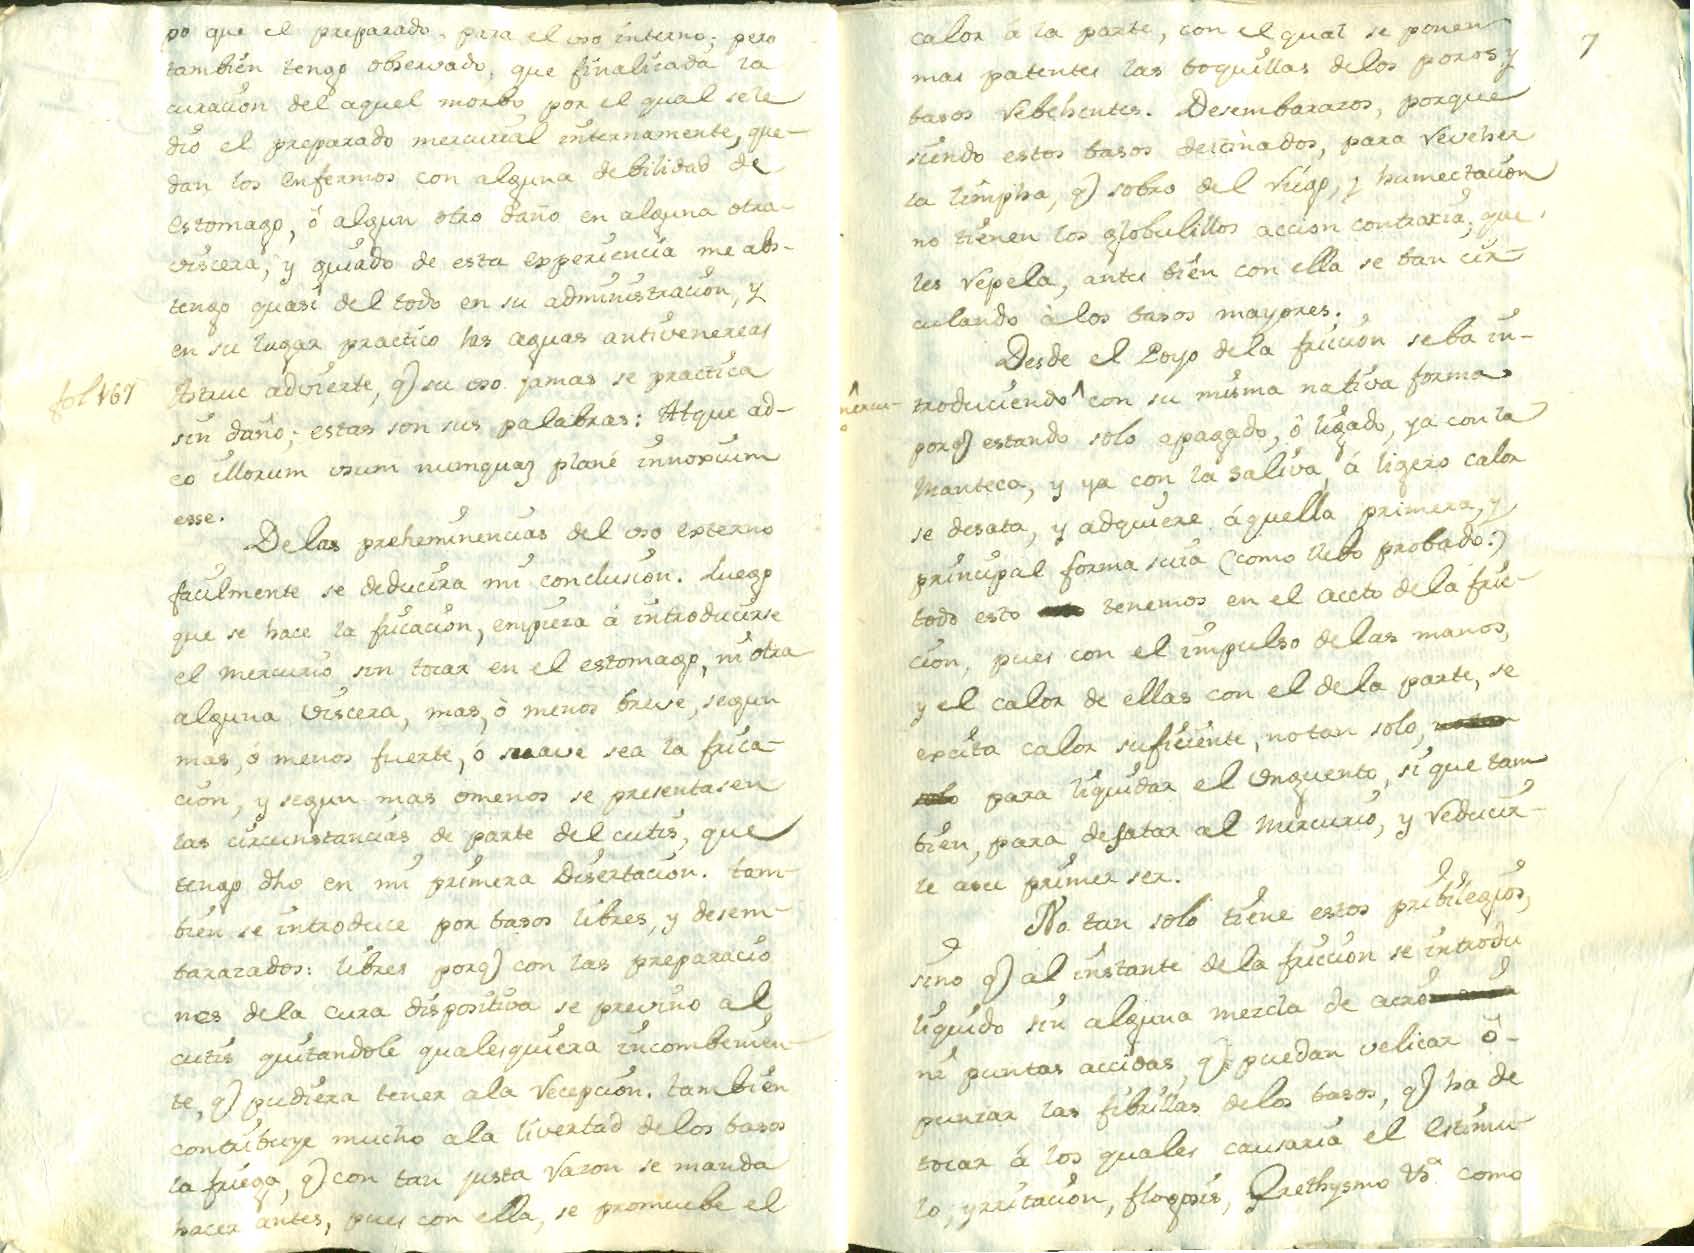 po que el preparado, para el uso interno; pero
tambien tengo observado, que finalicada la
curacion del aquel morbo por el qual sele
dio el preparado mercurial internamente, que-
dan los enfermos con alguna debilidad de
estomago, ó algun otro daño en alguna otra
viscera; y guiado de esta experiencia me abs-
tengo quasi del todo en su administracion, y
en su lugar practico las aguas antivenereas
fol 167
Astruc advierte, q) su uso jamas se practica
sin daño; estas son sus palabras: Atque ad-
eo illorum usum numquaz plané innoxium
esse.
Delas preheminencias del uso externo
facilmente se deducira mi conclusion. Luego
que se hace la fricacion, empiera á introducirse
el mercurio sin tocar en el estomago, ni otra
alguna viscera, mas, ò menos breve, segun
mas, ó menos fuerte, ó suave sea la frica-
cion, y segun mas omenos se presentasen
las circunstancias de parte del cutis, que
tengo dho en mi primera Disertacion. tam-
bien se introduce por basos libres, y desem-
bararados: libres porq) con las preparacio
nes dela cura dispositiva se previno al
cutis quitandole qualesquiera incombenien-
te, q) pudiera tener ala recepcion. tambien
contribuye mucho ala livertad delos basos
la friega, q) con tan justa raron se manda
hacer antes, pues con ella, se promuebe el
7
calor á la parte, con el qual se ponen
mas patentes las boquillas delos poros y
basos rebehentes. Desembararos, porque
siendo estos basos destinados, para reveher
la limpha, q) sobro del riego, y humectacion
no tienen los globulillos accion contraria, que
les repela, antes bien con ella se ban cir-
culando à los basos mayores.
Desde el Poyo dela friccion seba in-
troduciendo ^ con su misma nativa forma
porq) estando solo apagado, ô ligado, ya con la
Manteca, y ya con la saliva, á ligero calor
se desata, y adquiere áquella primera, y
principal forma suia (como llebo probado:)
todo esto tenemos en el accto dela fric-
cion, pues con el impulso delas manos,
y el calor de ellas con el dela parte, se
excita calor suficiente, no tan solo,
para liquidar el unguento, si que tam
bien, para desatar al Mercurio, y reducir-
le asu primer ser.
No tan solo tiene estos pribilegios,
sino q) al instante dela friccion se introdu
liquido sin alguna mezcla de acro
ni puntas accidas, q) puedan velicar ò
punzar las fibrillas delos basos, q) ha de
tocar á los quales causaria el estimu-
lo, yrritacion, flogosis, Yrethysmo &ª como